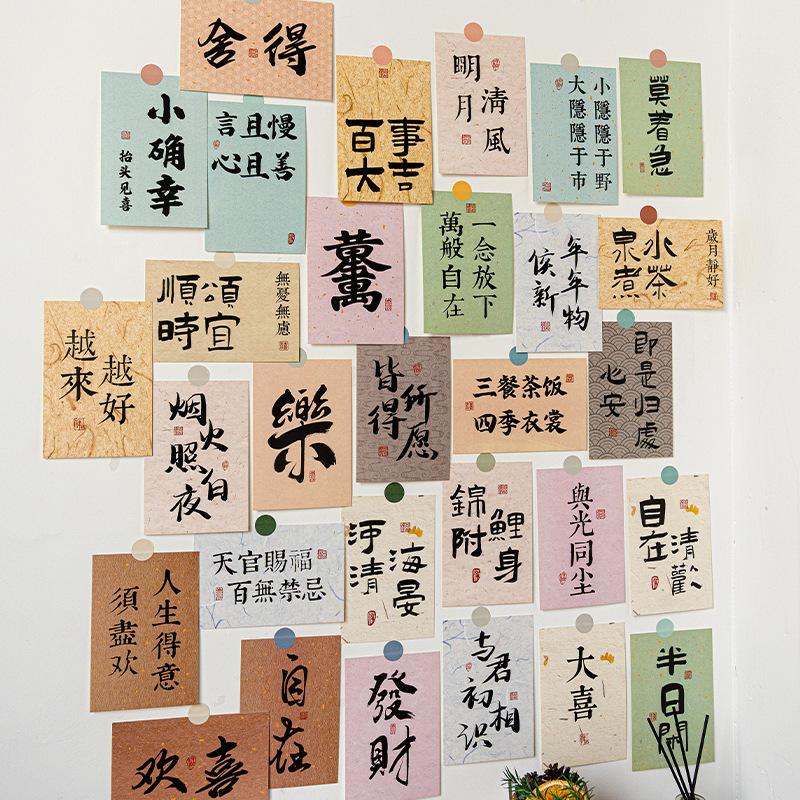 舍得
小确幸
抬头见喜
言且慢
心且善
百事
大吉
明月
清風
小隱隱于野
大隱隱于市
莫着急
一念放下
萬般自在
年年物
候新
泉水
煮茶
歲月靜好
順頌
時宜
無憂無慮
越來
越好
烟火
照夜白
樂
所愿
皆得
三餐茶饭
四季衣裳
心安
即是归處
天官賜福
百無禁忌
河清
海晏
錦鯉
附身
與光同尘
自在
清歡
人生得意
須盡欢
自在
發財
与君
初相
识
大喜
半日閑
欢喜